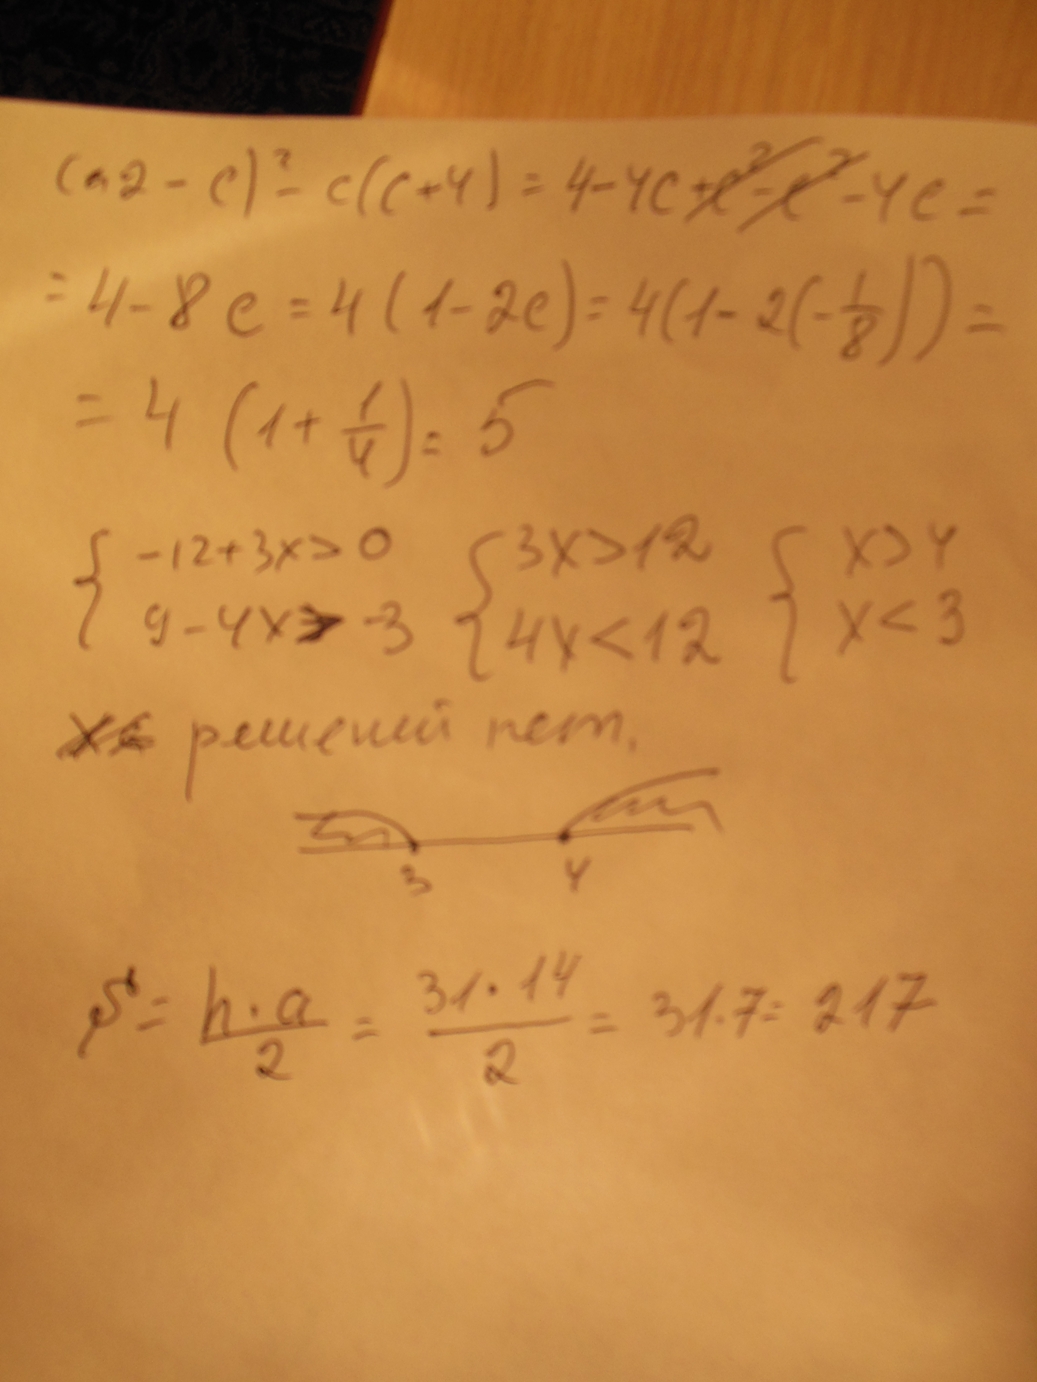 (2 - c)² - c(c+4) = 4-4c+c²-c²-4c =
= 4-8c = 4(1-2c) = 4(1-2(-1/8)) =
= 4 (1+1/4) = 5
{ -12+3x>0 { 3x>12 { x>4
{ 9-4x>-3 { 4x<12 { x<3
решений нет.
3 4
S = h·a/2 = 31·14/2 = 31·7 = 217